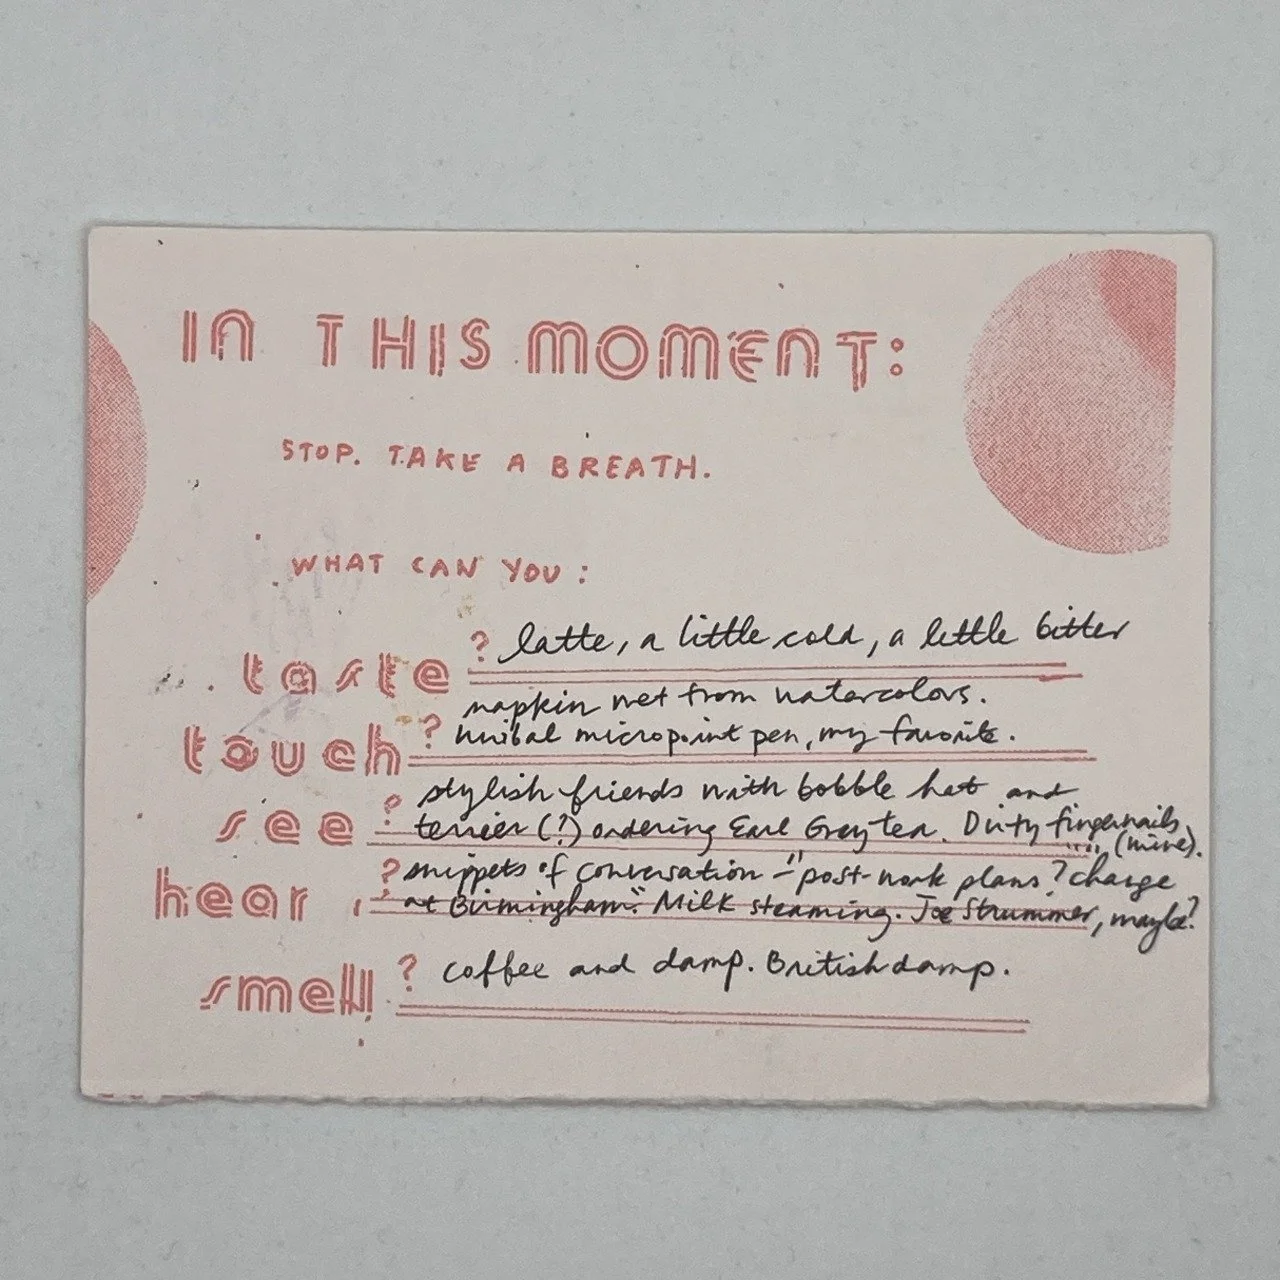 IN THIS MOMENT:
STOP. TAKE A BREATH.
WHAT CAN YOU:
taste? latte, a little cold, a little bitter
napkin wet from watercolors.
touch? Uniball micropoint pen, my favorite.
stylish friends with bobble hat and
see? terrier (?) ordering Earl Grey tea. Dirty fingernails
(mine).
hear? snippets of conversation – "post-work plans? change
at Birmingham." Milk steaming. Joe Strummer, maybe?
smell? coffee and damp. British damp.